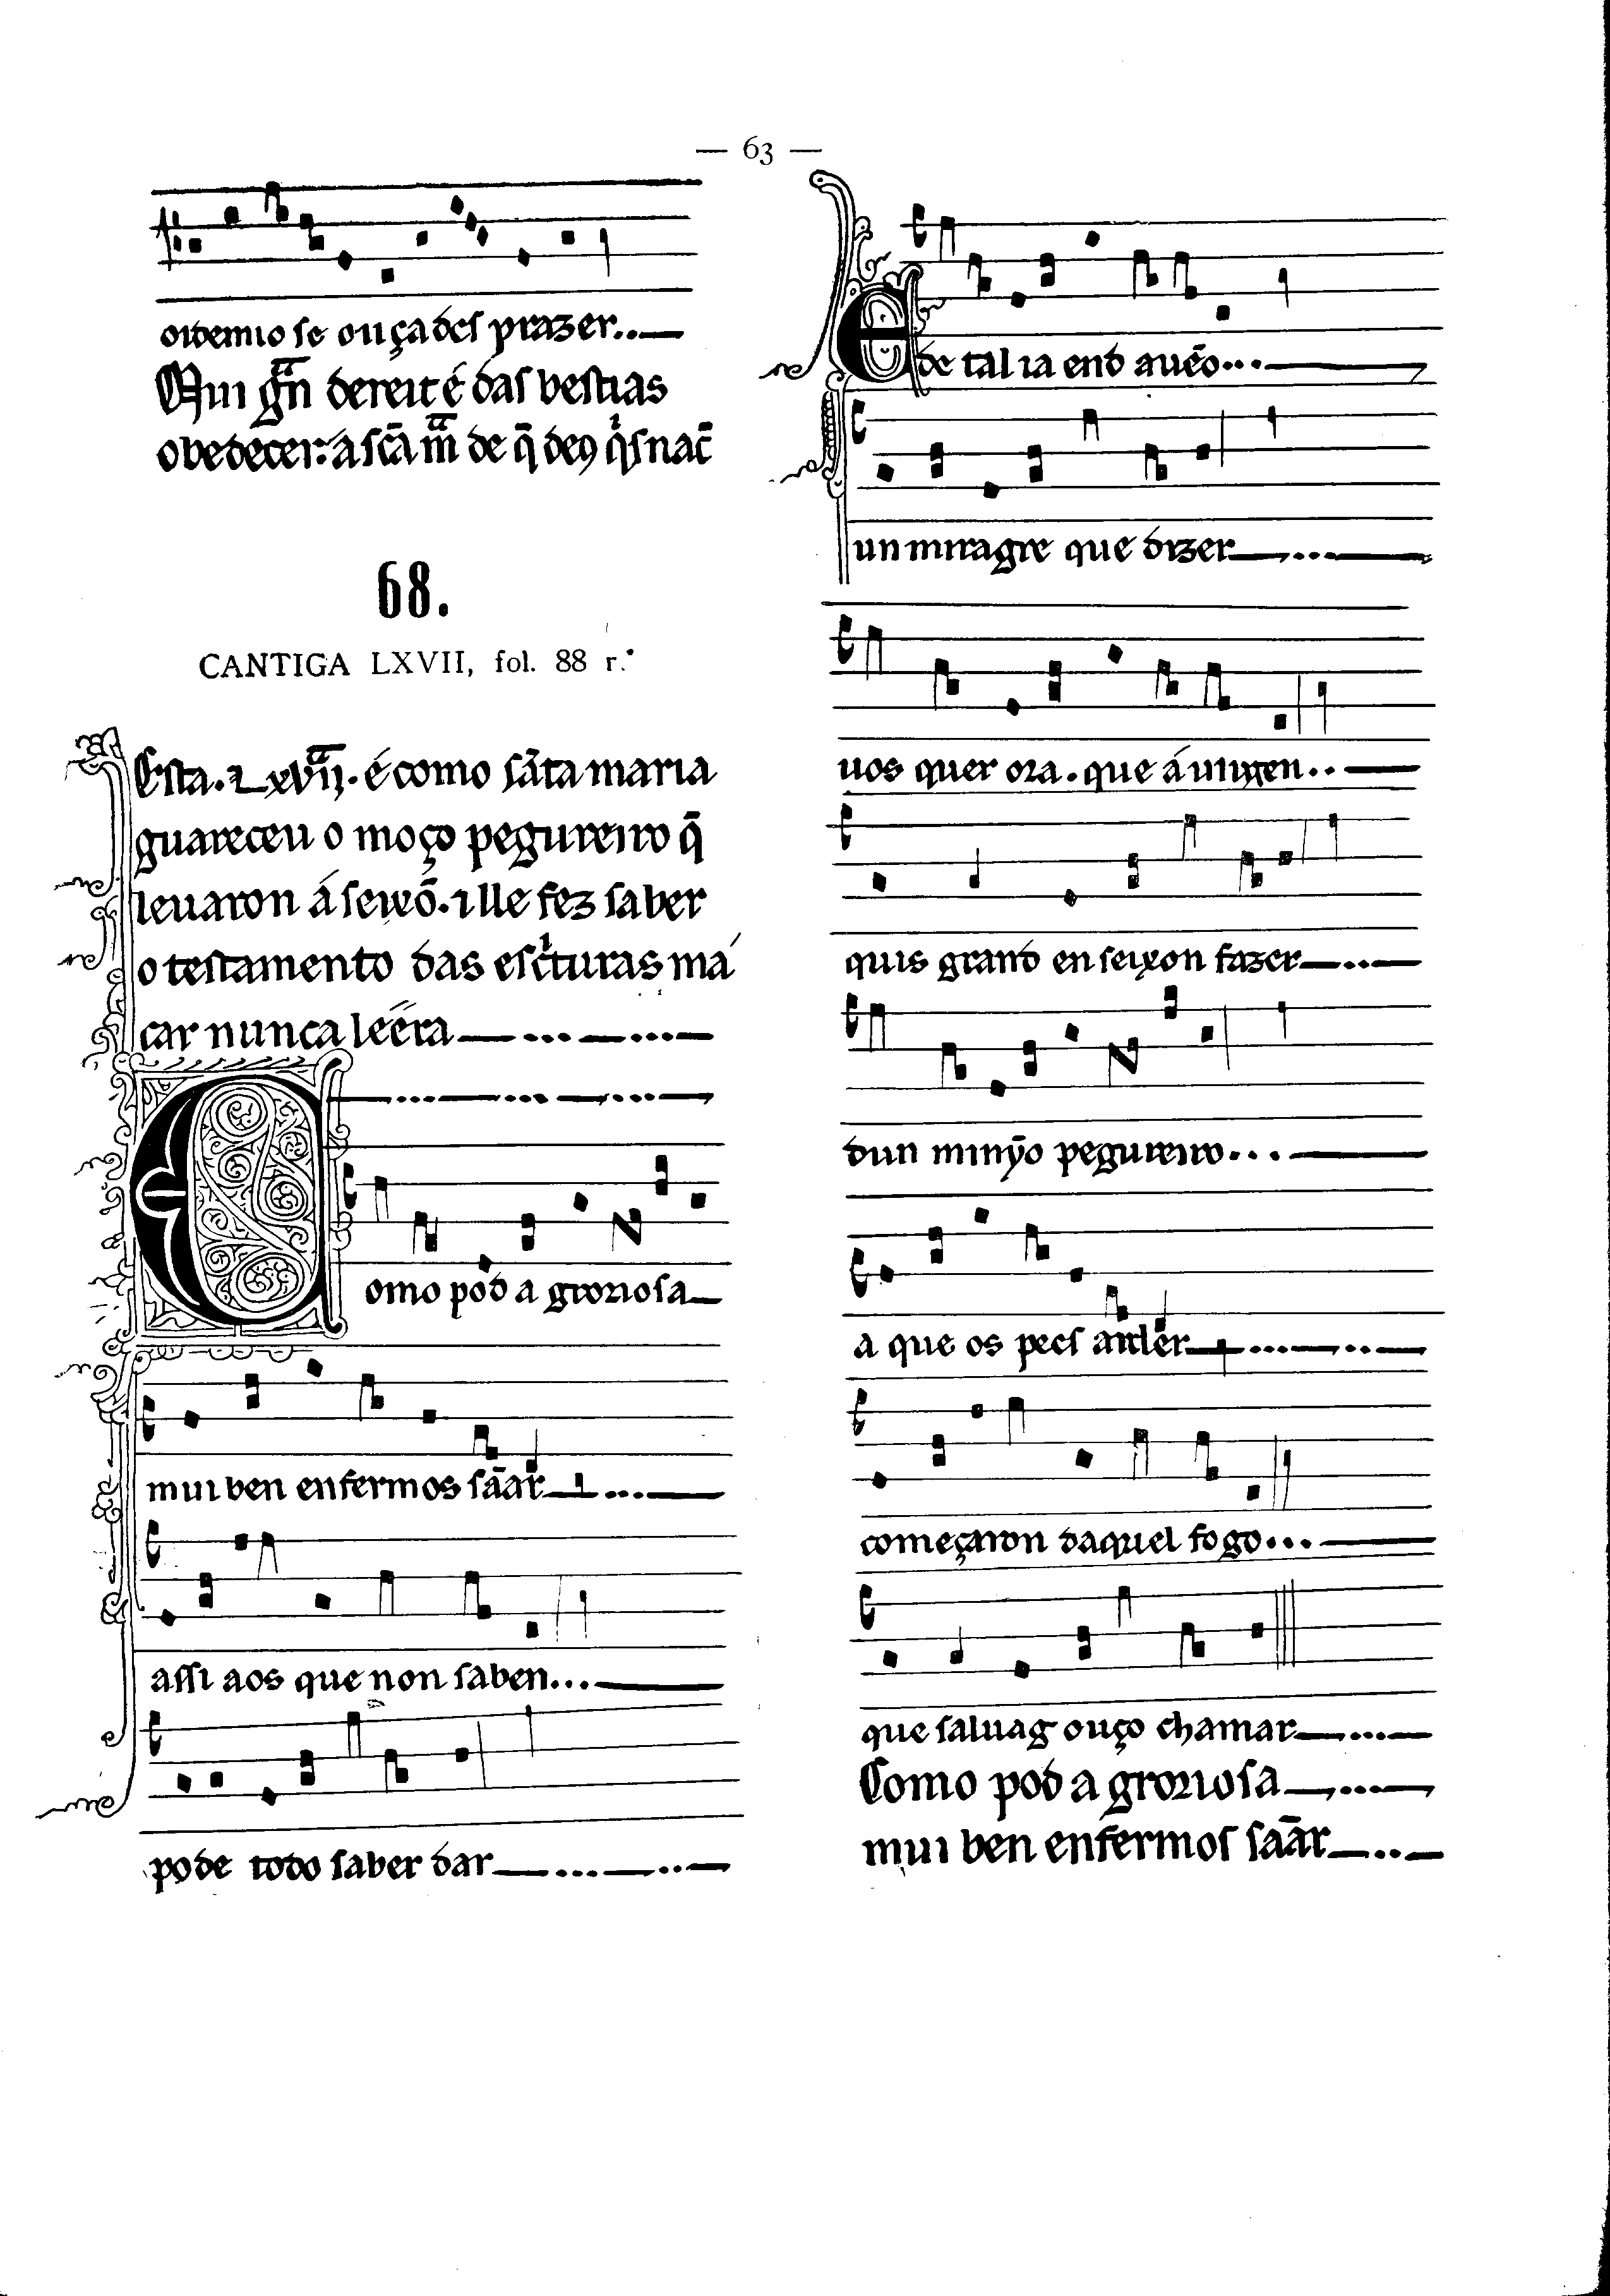 — 63 —
oídemio se ouçades prazer..—
Mui gͣn dereit é das bestias
obedecer: a sc̃a mͣ de q̃ deꝯ qͥs nac̃
68.
CANTIGA LXVII, fol. 88 r.°
Esta . Lxvıȷ̈ͣ . é como sãta maria
guareceu o moço pegureiro q̃
leuaron á seixõ . ⁊ lle fez saber
o testamento das escͥturas ma
car nunca leera
omo pod a groriosa
mui ben enfermos sãar
assi aos que non saben...
pode todo saber dar
E de tal ia end auẽo...
un miragre que dizer
uos quer ora . que á uirgen..
quis grand en seixon fazer
dun minỹo pegureiro...
a que os pees ardер
começaron daquel fogo...
que saluag ouço chamar
Como pod a groriosa
mui ben enfermos saãr